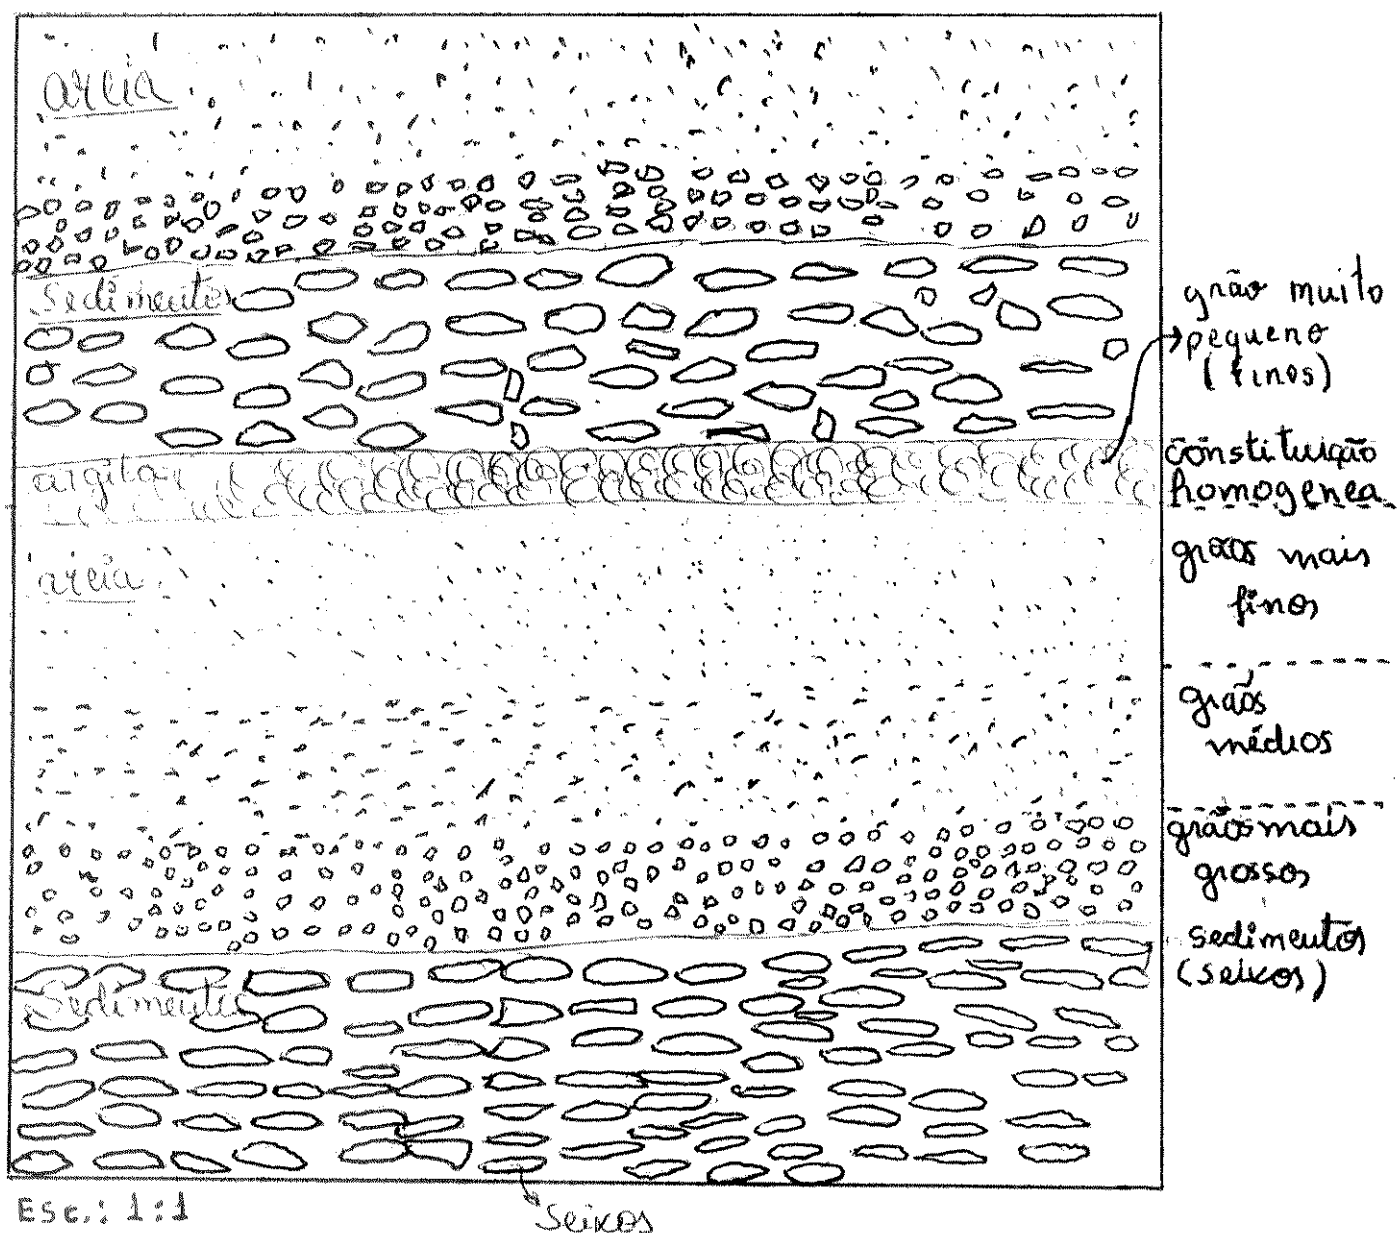 areia
Sedimentos
argila
areia
Sedimentos
Esc.: 1:1
Seixos
grão muito
pequeno
(finos)
constituição
homogenea
grãos mais
finos
grãos
médios
grãos mais
grossos
sedimentos
(seixos)